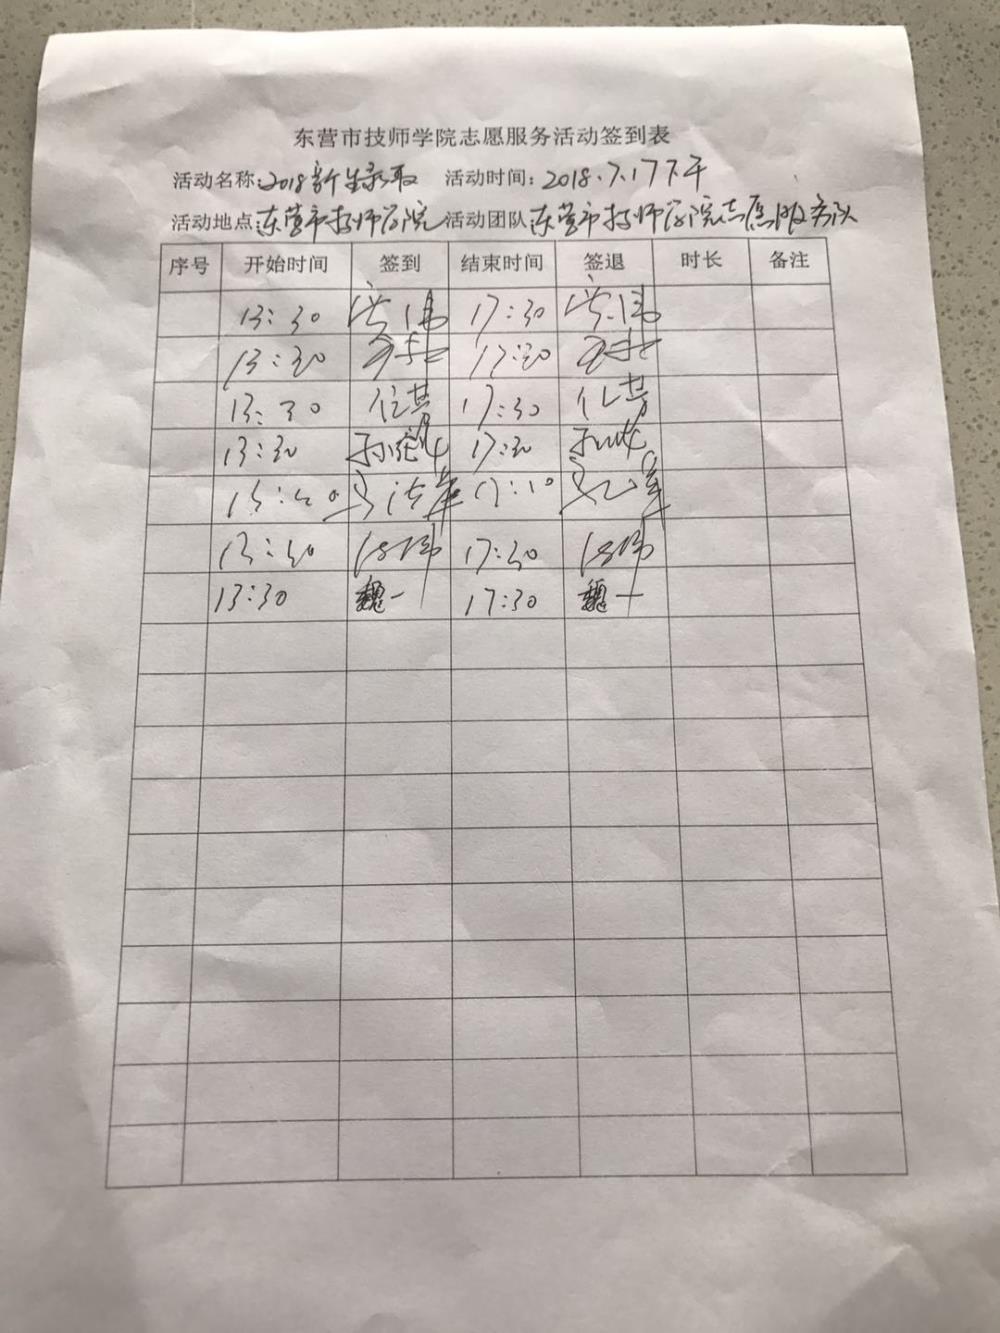 东营市技师学院志愿服务活动签到表
活动名称:2018新生录取 活动时间:2018.7.17下午
活动地点 东营市技师学院 活动团队 东营市技师学院志愿服务队
序号 开始时间 签到 结束时间 签退 时长 备注
13:30 17:30
13:30 17:30
13:30 任芳 17:30 任芳
13:30 17:30
13:30
13:30 17:30
13:30 魏一 17:30 魏一